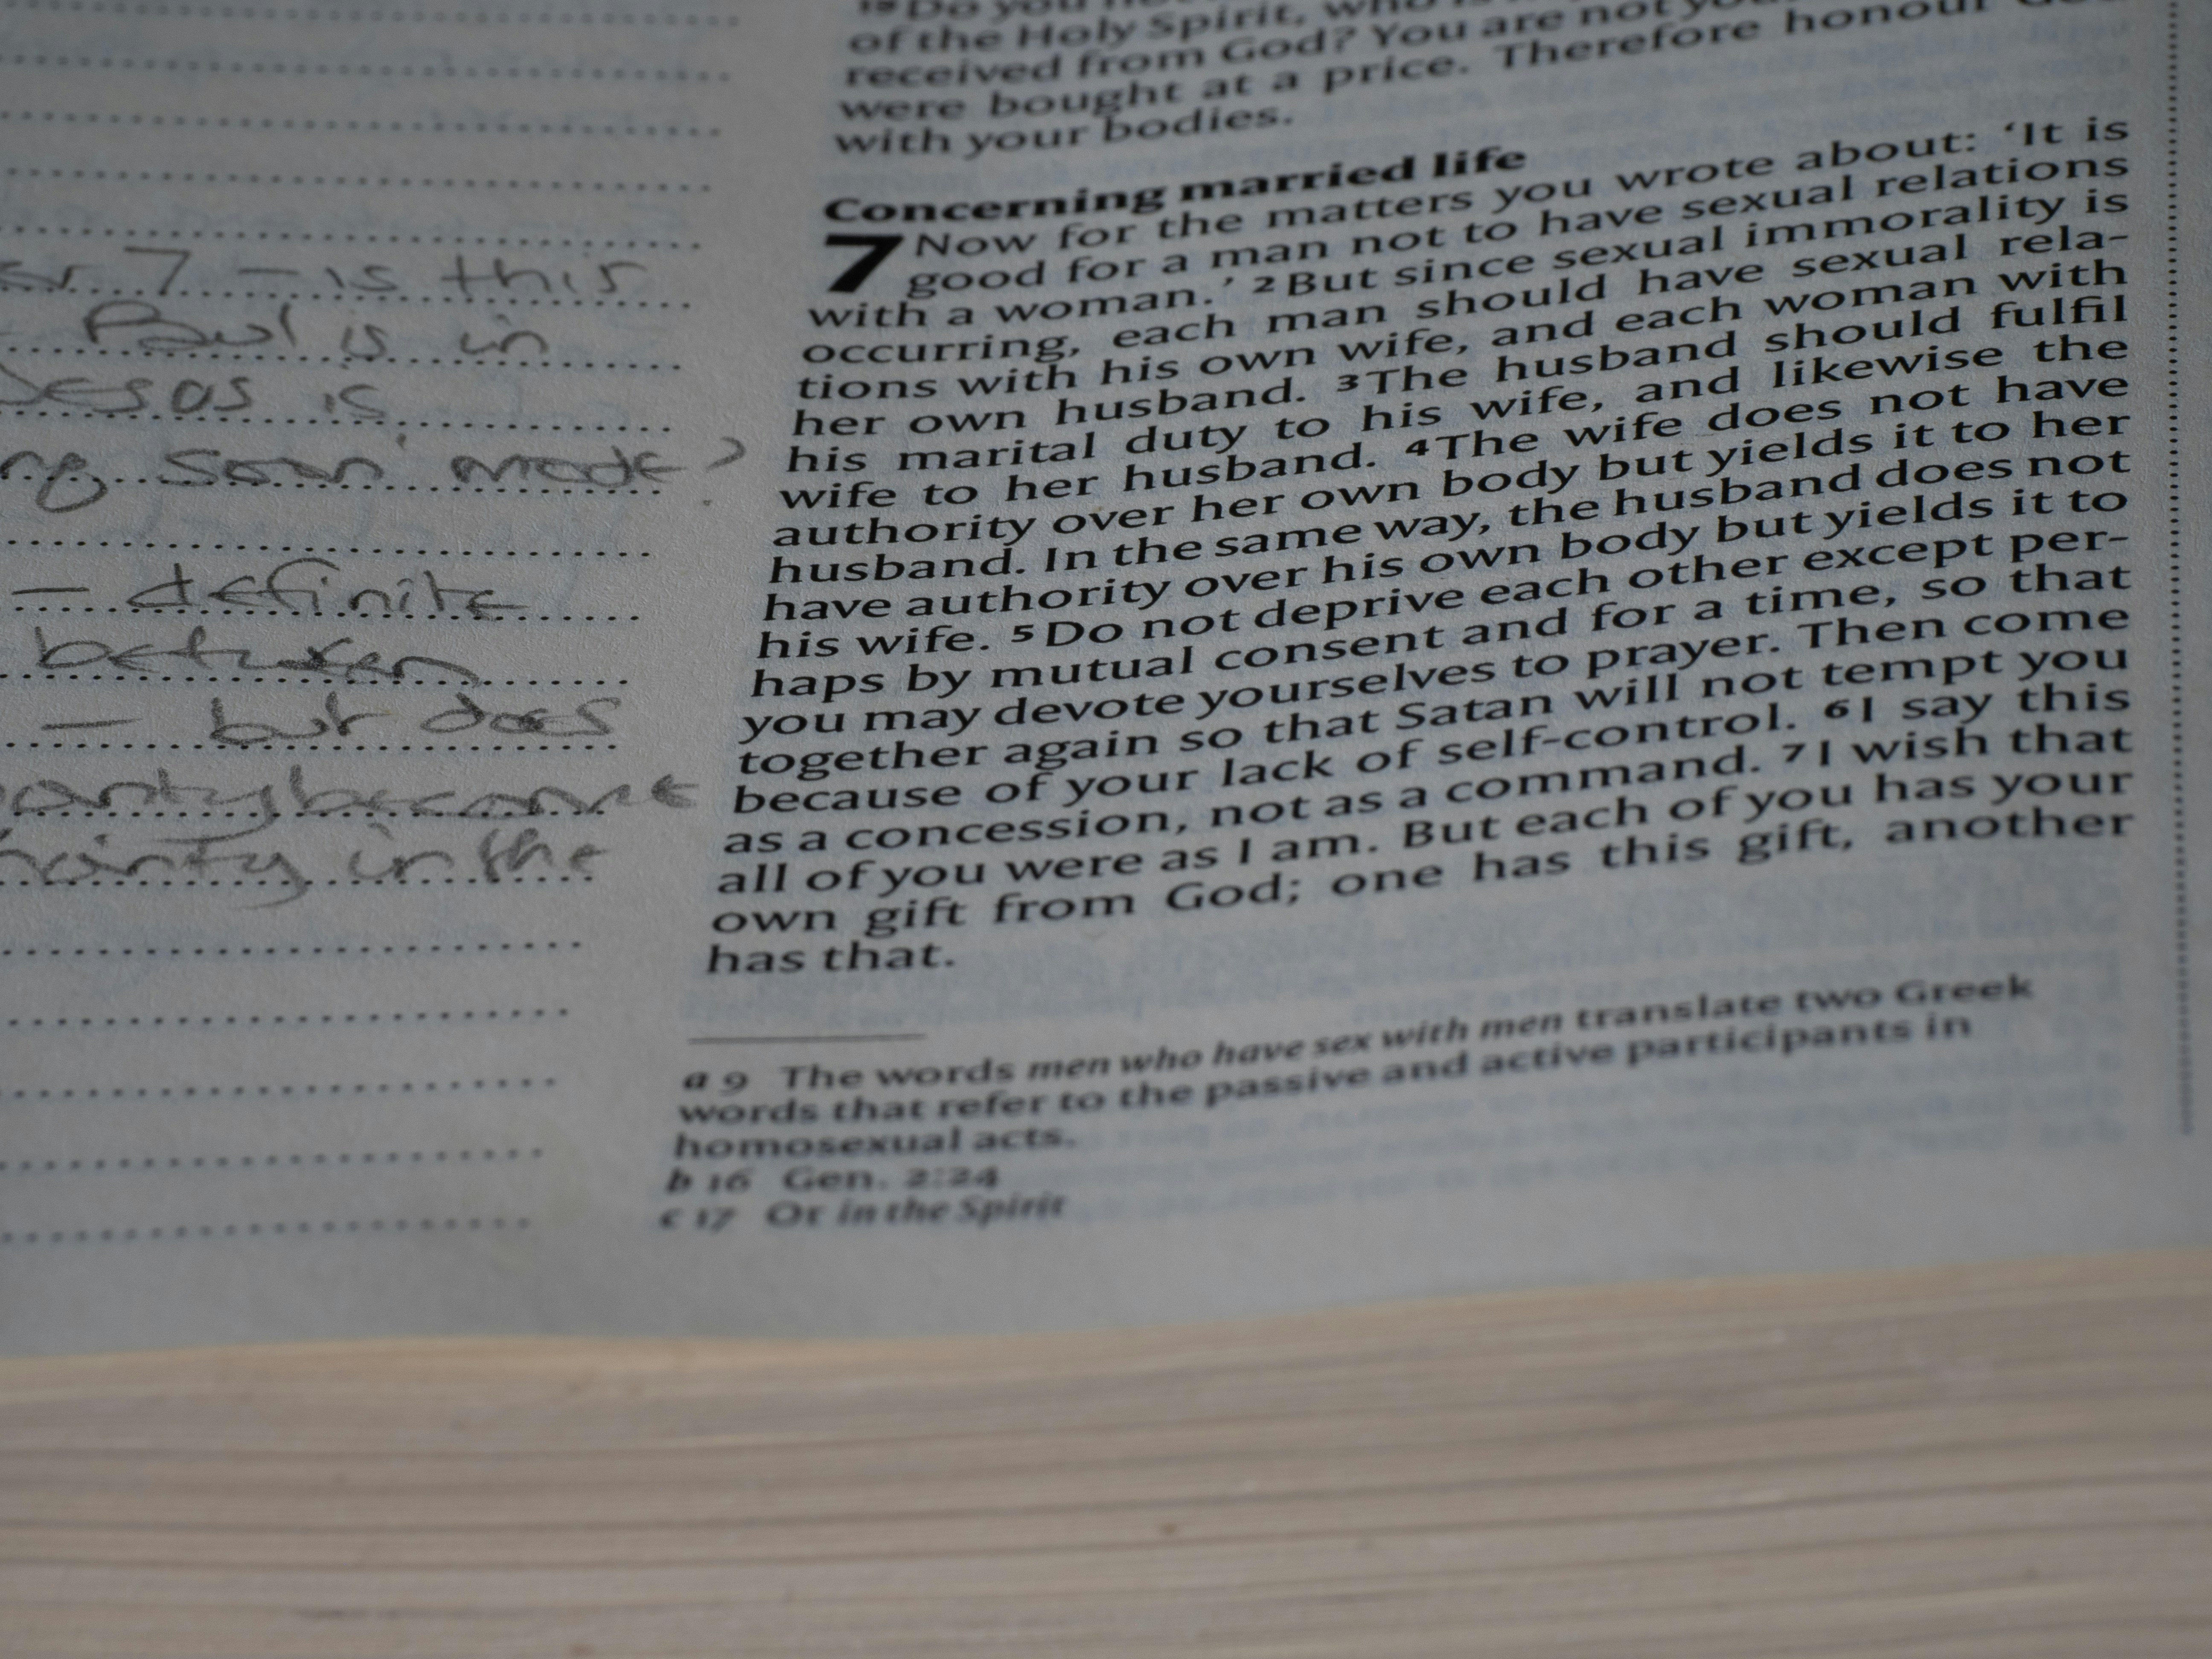 er 7 – is this
Paul is in
Jesus is
soon' mode?
– definite
between
– but does
become
in the
19 Do you
of the Holy Spirit, who is
received from God? You are not
were bought at a price. Therefore honour God
with your bodies.
Concerning married life
7 Now for the matters you wrote about: ‘It is
good for a man not to have sexual relations
with a woman.’ 2 But since sexual immorality is
occurring, each man should have sexual rela-
tions with his own wife, and each woman with
her own husband. 3 The husband should fulfil
his marital duty to his wife, and likewise the
wife to her husband. 4 The wife does not have
authority over her own body but yields it to her
husband. In the same way, the husband does not
have authority over his own body but yields it to
his wife. 5 Do not deprive each other except per-
haps by mutual consent and for a time, so that
you may devote yourselves to prayer. Then come
together again so that Satan will not tempt you
because of your lack of self-control. 6 I say this
as a concession, not as a command. 7 I wish that
all of you were as I am. But each of you has your
own gift from God; one has this gift, another
has that.
a 9 The words men who have sex with men translate two Greek
words that refer to the passive and active participants in
homosexual acts.
b 16 Gen. 2:24
c 17 Or in the Spirit